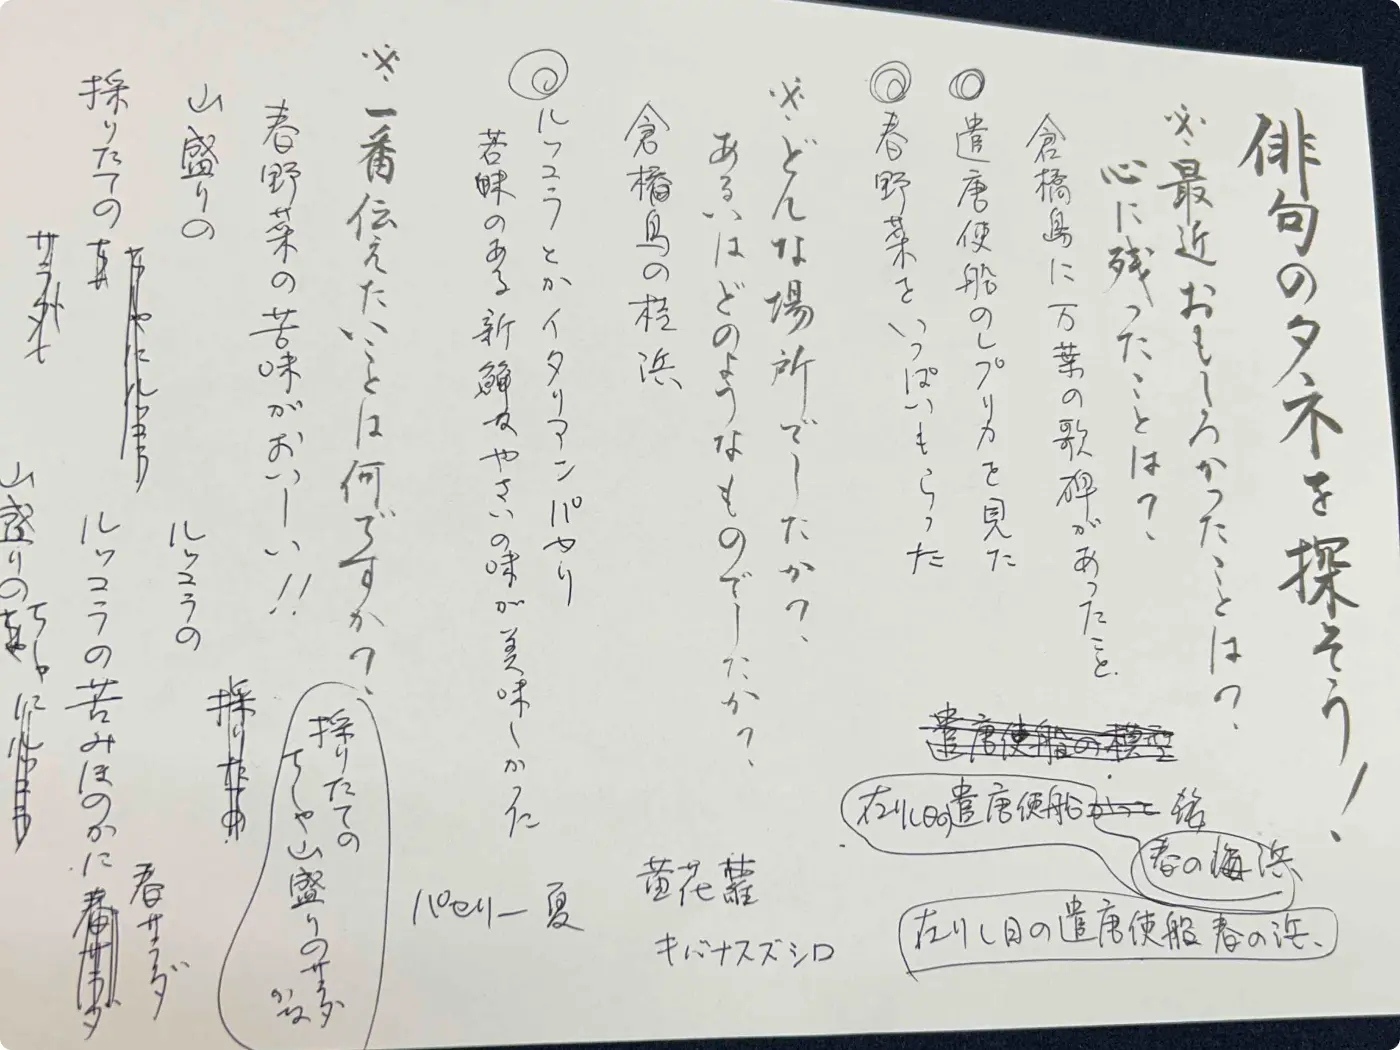 俳句のタネを探そう!
※最近おもしろかったことは?
心に残ったことは?
倉橋島に万葉の歌碑があったこと
遣唐使船のレプリカを見た
春野菜をいっぱいもらった
遣唐使船の模型
在りし日の遣唐使船
春の海浜
在りし日の遣唐使船春の浜、
※どんな場所でしたか?
あるいはどのようなものでしたか?
倉橋島の桂浜
黄花蘿
キバナスズシロ
ルッコラとかイタリアンパセリ
苦味のある新鮮なやさいの味が美味しかった
パセリー夏
※一番伝えたいことは何ですか?
春野菜の苦味がおいしい!!
採りたての
ちしゃ山盛りのサラダ
かな
山盛りの
ルッコラの
採りたての
採りたての
ルッコラの苦みほのかに
春サラダ
山盛りの